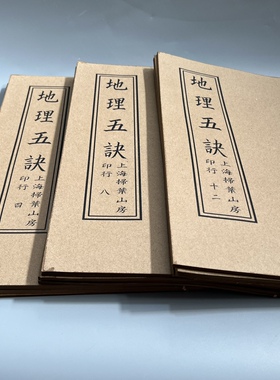 地理五訣
上海掃葉山房
印行 四
地理五訣
上海掃葉山房
印行 八
地理五訣
上海掃葉山房
印行 十二